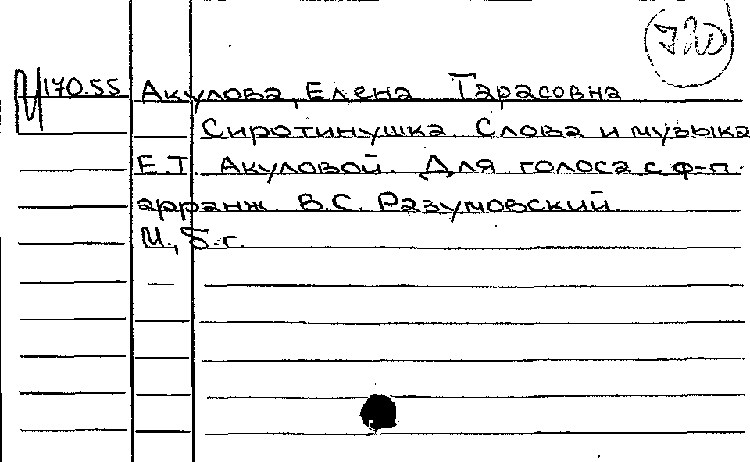 720
М 170.55 Акулова, Елена Тарасовна
Сиротинушка. Слова и музыка
Е.Т. Акуловой. Для голоса с ф-п.
арранж В.С. Разумовский
М., б.г.